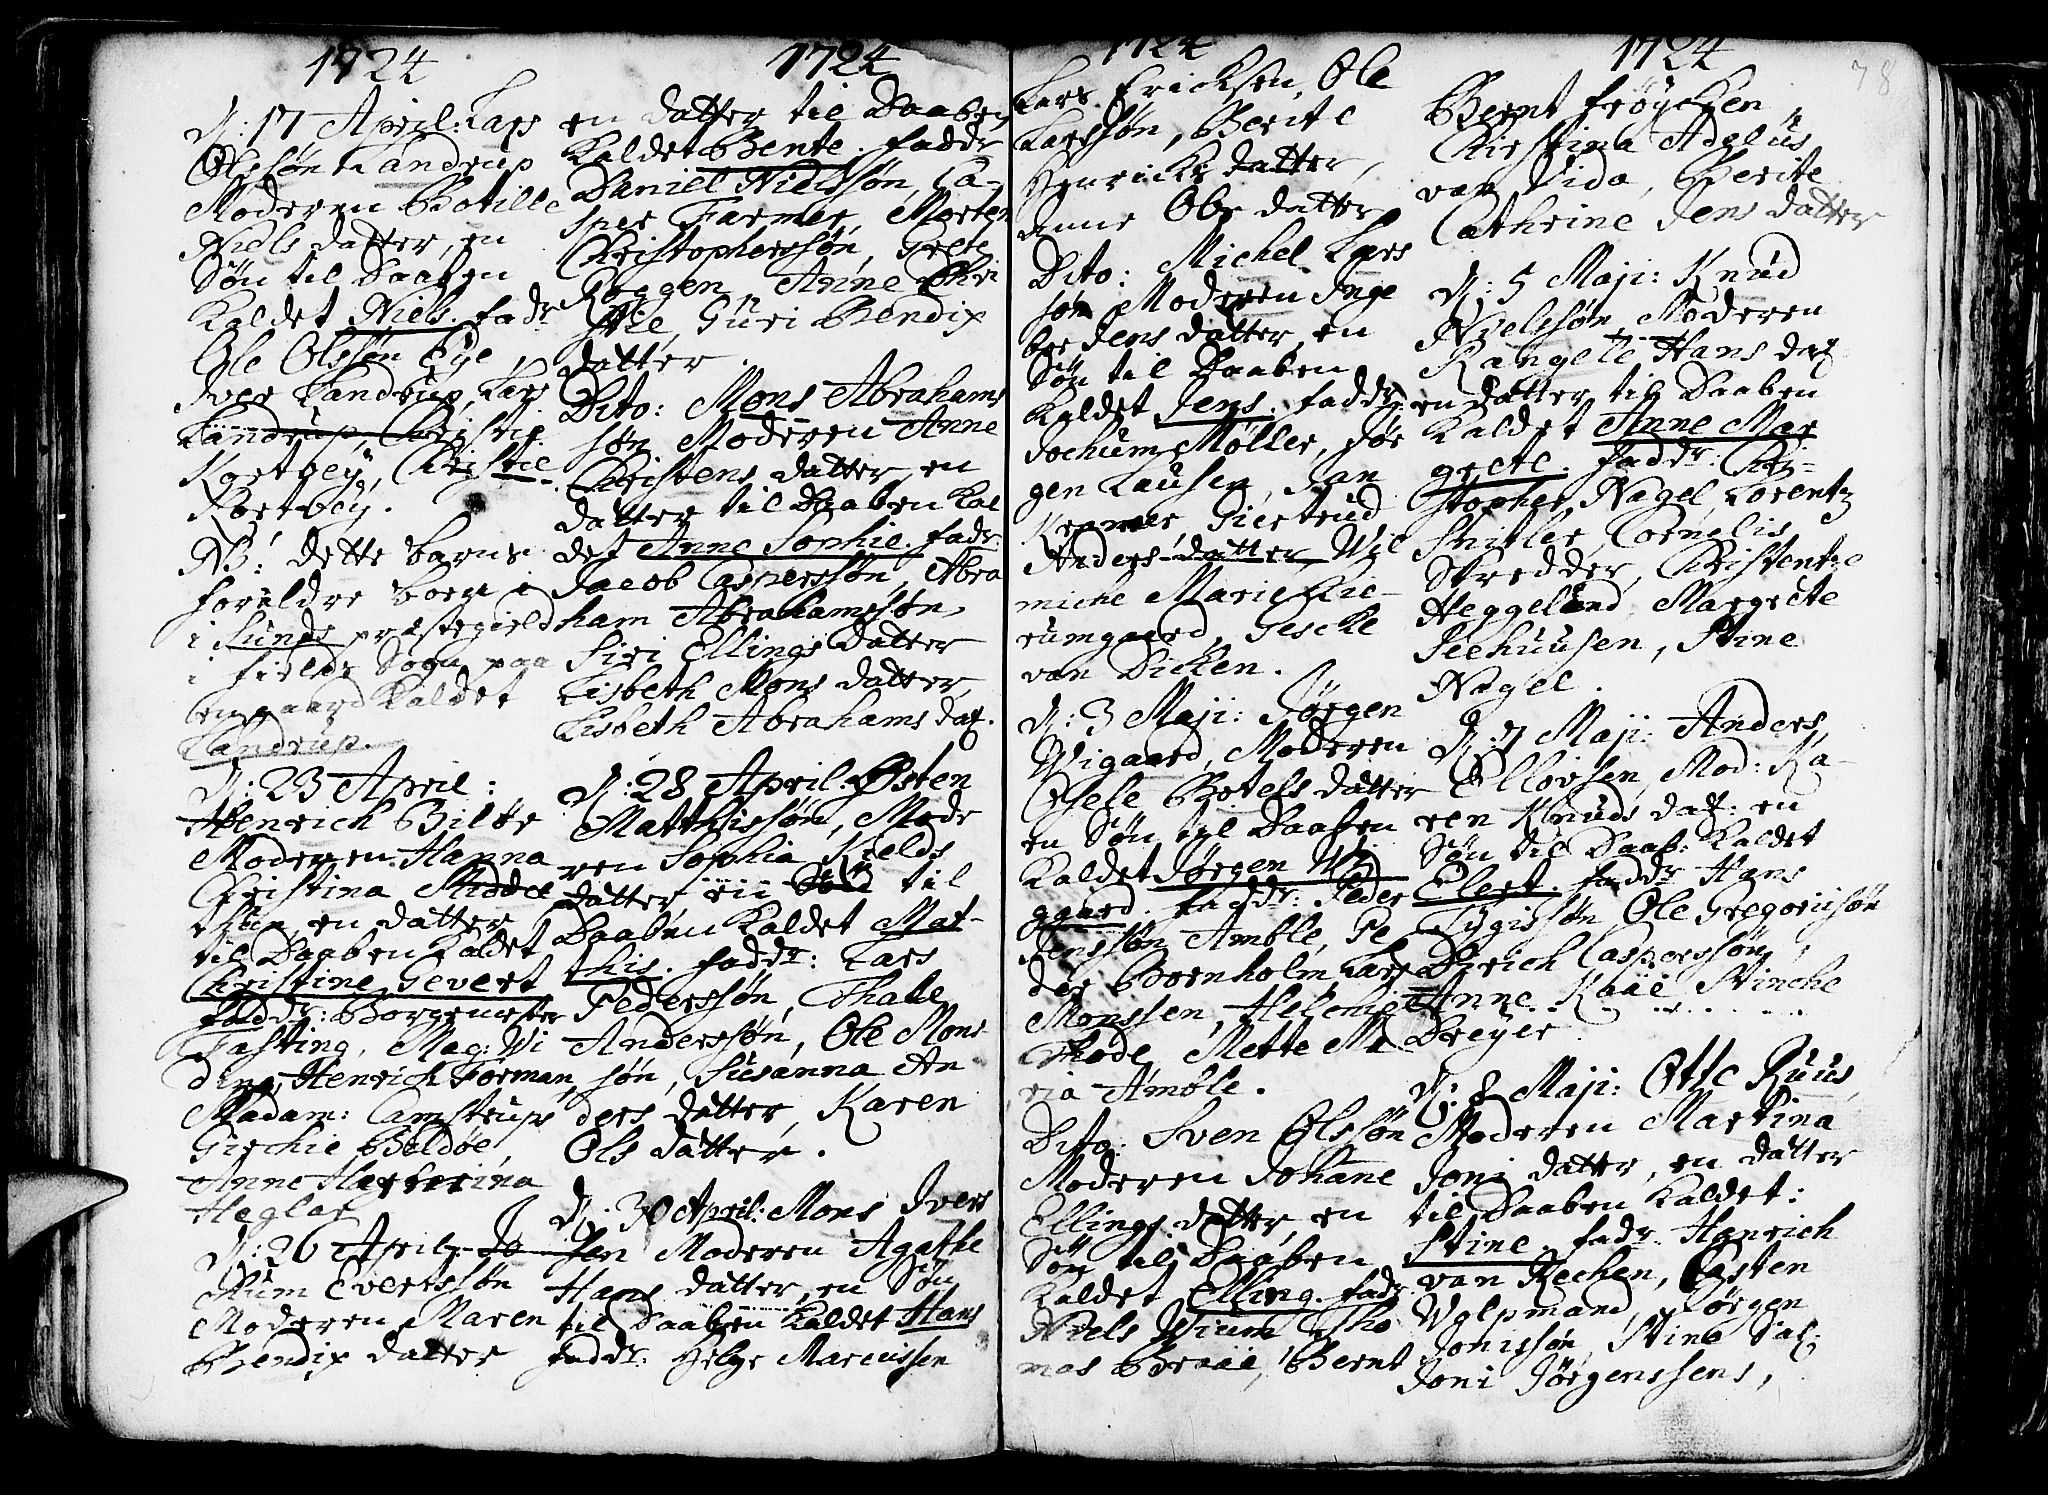 1724
D: 17 April: Lars
Olssøn Landrup
Moderen Botille
Niels datter, en
Søn til Daaben
Kaldet Niels. fadr
Ole Olssøn Eye,
Iver Landrup, Lars
Landrup, Christi.
Kortvey, Christie
Kortvey.
NB: dette barns
foreldre boer i
i Lunds præstegield
i fields Sogn paa
en gaard Kaldet
Landrup.
D: 23 April:
Henrich Bildøe
Moderen Hanna
Christina Middel
thon, en datter
til Daaben Kaldet
Christine Gevert
faddr: Borgemester
Fasting, Mag: Wi
ding, Henrich Forman,
Madam: Camstrups
Girchie Beldøe,
Anne Harberina
Heglar
D: 26 April: Jo
chum Evertssøn
Moderen Maren
Bendix datter
1724
en datter til Daaben
Kaldet Bente. faddr
Daniel Nielssøn, Ca-
sper Farmer, Morten
Christopherssøn, Grete
Roggen, Anne Chri
stie, Güri Bendix
datter.
Dito: Mons Abrahams
søn Moderen Anne
Christens datter, en
datter til Daaben Kal
det Anne Sophie. fadr.
Jacob Casperssøn, Abra
ham Abrahamssøn,
Siri Ellings datter
Lisbeth Mons datter,
Lisbeth Abrahams dat.
D: 28 April: Østen
Matthissøn, Mode
ren Sophia Kields
datter en Søn til
Daaben Kaldet Mat-
this. faddr: Lars
Pederssøn, Thale
Anderssøn, Ole Mons
søn, Susanna An
ders datter, Karen
Ols datter.
D: 30 April: Mons Ivers
sen Moderen Agathe
Hans datter, en Søn
til Daaben Kaldet Hans
faddr: Helge Marcussen
1724
Lars Ericksen, Ole
Larssøn, Berite
Henricks datter,
Anne Ols datter
Dito: Michel Lars
søn Moderen Inge
bor Jens datter, en
Søn til Daaben
Kaldet Jens. faddr:
Jochum Møller, Jør
gen Clausen, Jan
Kremer, Giertrud
Anders datter, Wil
miche Marie Lie-
rumgaard, Gescke
van Dicken.
D: 3 Maji: Jørgen
Wigaard, Moderen
Giele Botels datter
en Søn til Daaben
Kaldet Jørgen Wi
ggard. faddr: Peder
Jenssøn Amble, Pe
der Bornholm, Lars
Monssen, Helena
Thode, Mette Ma
ria Amble.
Dito: Sven Olssøn
Moderen Johane
Ellings datter, en
Søn til Daaben
Kaldet Elling. fadr
Niels Wium, Tho
mas Braüe, Bernt
1724
78
Bernt frøychen,
Christina Adelüs
van Vida, Berite
Cathrine Jens datter
D: 5 Maji: Knud
Nielssøn Moderen
Rangele Hans dat
en datter til Daaben
Kaldet Anne Mar
grete. faddr: Chri-
stopher Nagel, Lorentz
Snitler, Cornelis
Stredder, Christentze
Heggelund, Margrete
Seehuusen, Stine
Nagel.
D: 7 Maji: Anders
Ellovsen, Mod: Ka-
ren Knuds dat: en
Søn til Daab: Kaldet
Elert. faddr Hans
Tygissøn Ole Gregorüsøn
Dirich Casperssøn,
Anne Kaae, Stinche
Dreyer
D: 8 Maji: Otte Ruus,
Moderen Martina
Joni datter, en datter
til Daaben Kaldet:
Stine. fadr. Henrich
van Rechen, Casten
Wolpmand, Jørgen
Jonissøn, Stine Sal:
Joni Jørgenssens,